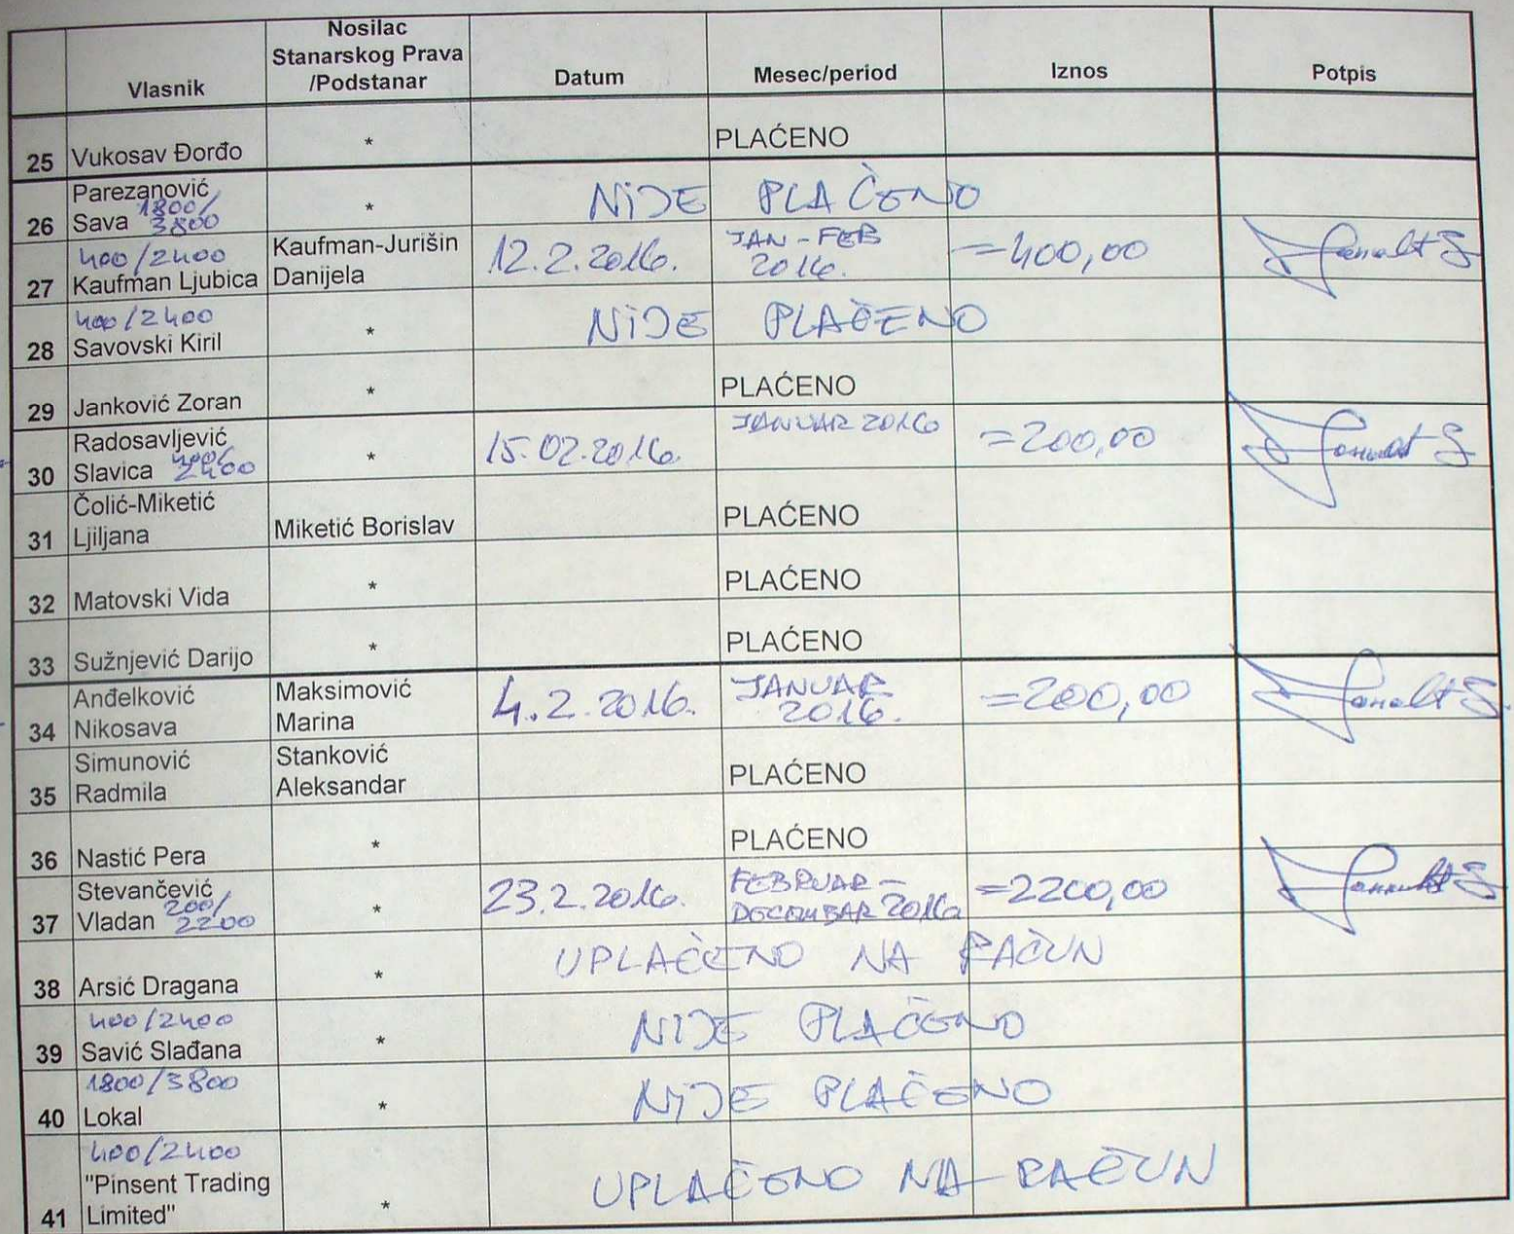 Vlasnik Nosilac Stanarskog Prava /Podstanar Datum Mesec/period Iznos Potpis
25 Vukosav Đorđo * PLAĆENO
26 Parezanović Sava 1800/3800 * NIJE PLAĆENO
27 400/2400 Kaufman Ljubica Kaufman-Jurišin Danijela 12.2.2016. JAN-FEB 2016. =400,00
28 400/2400 Savovski Kiril * NIJE PLAĆENO
29 Janković Zoran * PLAĆENO
30 Radosavljević Slavica 400/2400 * 15.02.2016. JANUAR 2016 =200,00
31 Čolić-Miketić Ljiljana Miketić Borislav PLAĆENO
32 Matovski Vida * PLAĆENO
33 Sužnjević Darijo * PLAĆENO
34 Anđelković Nikosava Maksimović Marina 4.2.2016. JANUAR 2016. =200,00
35 Simunović Radmila Stanković Aleksandar PLAĆENO
36 Nastić Pera * PLAĆENO
37 Stevančević Vladan 200/2200 * 23.2.2016. FEBRUAR - DECEMBAR 2016 =2200,00
38 Arsić Dragana * UPLAĆENO NA RAČUN
39 400/2400 Savić Slađana * NIJE PLAĆENO
40 1800/3800 Lokal * NIJE PLAĆENO
41 400/2400 "Pinsent Trading Limited" * UPLAĆENO NA RAČUN